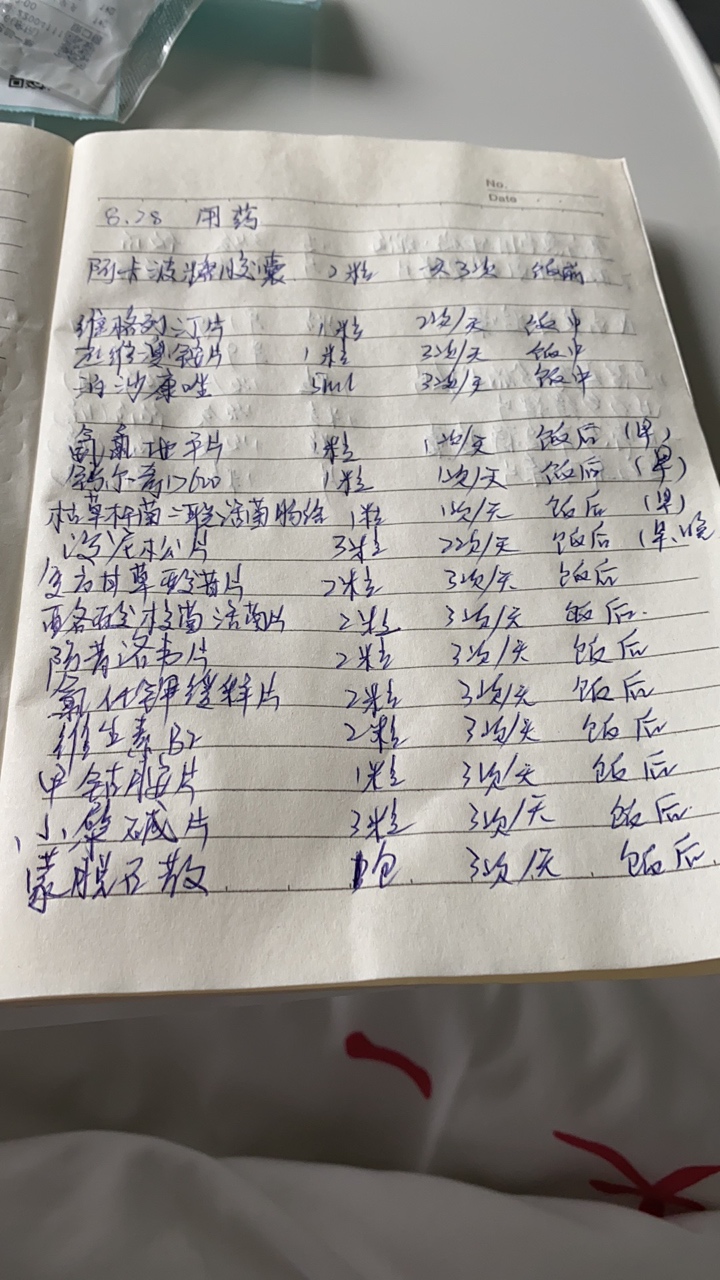 No.
Date
8.28 用药
阿卡波糖胶囊 2粒 1天3次 饭前
维格列汀片 1粒 2次/天 饭中
匹维溴铵片 1粒 3次/天 饭中
泊沙康唑 5ml 3次/天 饭中
氨氯地平片 1粒 1次/天 饭后 (早)
钙尔奇D600 1粒 1次/天 饭后 (早)
枯草杆菌二联活菌肠络 1粒 1次/天 饭后 (早)
泼尼松片 3粒 2次/天 饭后 (早、晚
复方甘草酸苷片 2粒 3次/天 饭后
酪酸梭菌活菌片 2粒 3次/天 饭后.
阿昔洛韦片 2粒 3次/天 饭后
氯化钾缓释片 2粒 3次/天 饭后
维生素B2 2粒 3次/天 饭后
甲钴胺片 1粒 3次/天 饭后
小檗碱片 3粒 3次/天 饭后
蒙脱石散 1包 3次/天 饭后